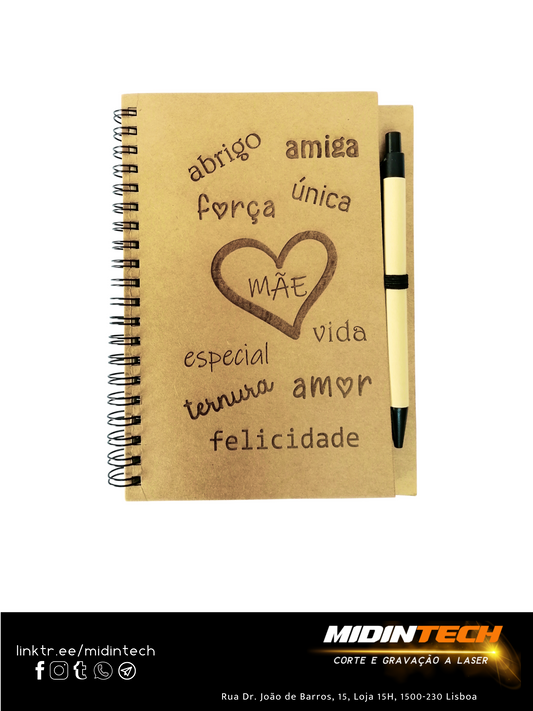 abrigo
amiga
força
única
MÃE
vida
especial
ternura
amor
felicidade
linktr.ee/midintech
MIDINTECH
CORTE E GRAVAÇÃO A LASER
Rua Dr. João de Barros, 15, Loja 15H, 1500-230 Lisboa